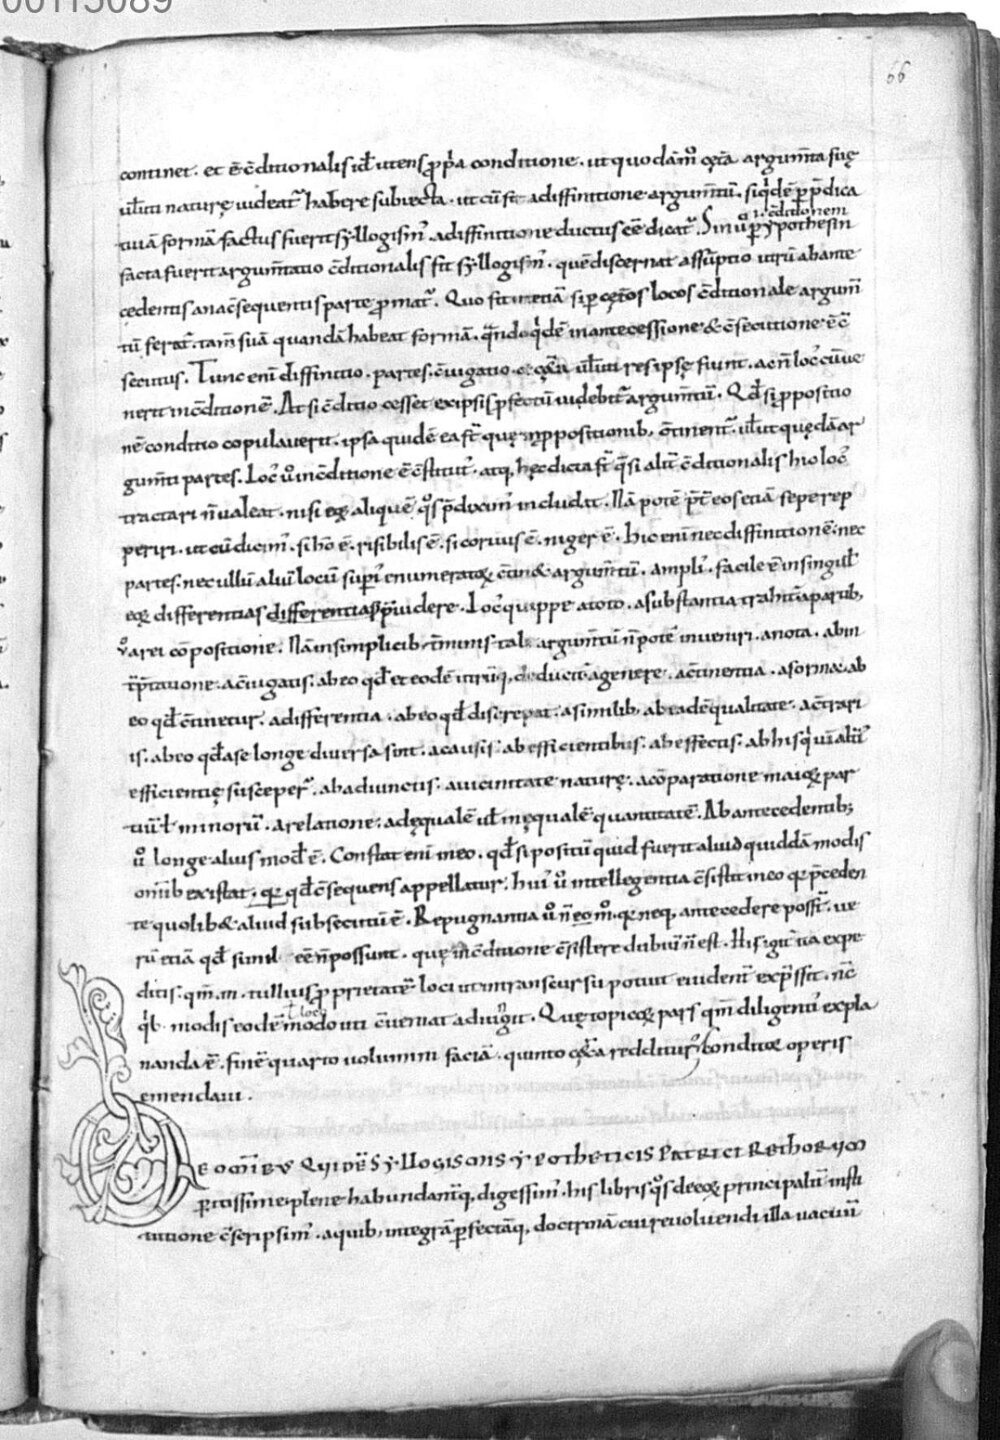 00115089
66
continet. et ē c̄ditionalis id ł utens ꝓp̄a conditione. ut quodā m̊ cęt̄a argum̄ta suę
ul̄iti naturę uideat̄ habere subiecta. ut cū fit a diffinitione argum̄tū. siq̇dē p p̄dica
i. c̄ditionem
tiuā formā factus fuerit syllogism̄. a diffinitione ductus eē dicat̄. Sin ů p ypothesin
facta fuerit argum̄tatio c̄ditionalis fit syllogism̄. quē discernat assūptio utrū ab ante
cędentis an a c̄sequentis parte ꝓmat̄. Quo fit ut etiā si p cęt̄os locos c̄ditionale argum̄
tū ferat̄. tam̄ suā quandā habeat formā. q̄ndoq̇dē in antecessione & c̄secutione ē c̄
secutus. Tunc eni diffinitio. partes. c̄iugatio. & cęt̄a ul̄iti res ipsę fiunt. ac n̄ loc̄ cū ue
nerit in c̄ditionē. At si c̄ditio cesset ex ipsis pfectū uidebit̄ argum̄tū. Qd̄ si ꝓpositio
nē conditio copulauerit. ipsa quidē ea s̄t quę in ꝓpositionib; c̄tinent̄. ul̄ut quędā ar
gum̄ti partes. Loc̄ ů in c̄ditione ē c̄stitut̄. atq; hęc dicta s̄t q̄si alit̄ c̄ditionalis hic loc̄
tractari n̄ ualeat. nisi eoꝝ aliquē q̊s p̄diximꝰ includat. Nā potē p̄t̄ eos etiā sepe rep
periri. ut cū dicimꝰ. si hō ē. risibilis ē. si coruus ē. niger ē. Hic eni nec diffinitionē. nec
partes. nec ullū aliū locū supi enumeratoꝝ c̄tin& argum̄tū. ampliꝰ. facile ē in singul̄
eoꝝ differentias differentias puidere. Loc̄ quippe a toto. a substantia trahit̄ a partib;
ů a rei cōpositione. Nā in simplicib; t̄minis tale argum̄tū n̄ potē inueniri. a nota. ab in
t̄p̄tatione. a c̄iugatis. ab eo qd̄ et eodē utriq; deducit̄ a genere. a c̄tinentia. a forma. ab
eo qd̄ c̄tinetur. a differentia. ab eo qd̄ discrepat. a similib; ab eadē qualitate. a c̄trari
is. ab eo qd̄ a se longe diuersa sint. a causis. ab efficientibus. ab effectis. ab his q̇ uī aliā
efficientię susceper̄. ab adiunctis. a uicinitate naturę. a cōparatione maioꝝ par
tiū ł minorū. a relatione. ad ęqualē ul̄ inęqualē quantitatē. Ab antecedentib;
ů longe alius mod̄ ē. Constat eni in eo. qd̄ si positū quid fuerit aliud quiddā modis
omnib existat. qr qd̄ c̄sequens appellatur. huiꝰ ů intellegentia c̄sistit in eo qr p̄ceden
te quolib& aliud subsecutū ē. Repugnantia ů n̄ eo m̊. qr neq; antecedere possit̄. ue
rū etiā qd̄ simul eē n̄ possunt. quę in c̄ditione c̄sistere dubiū n̄ est. His igit̄ ita expe
ditis. qm̄. m. tullius ꝓprietatē loci ut in transcursu potuit euident̄ exp̄ssit. n̄c
ł loco
q̇b. modis eodē modo uti c̄ueniat adiūgit. Quę topicoꝝ pars qm̄ diligentiꝰ expla
nanda ē. finē quarto uolumini faciā. quinto cęt̄a redditurꝰ conditoꝝ operis
emendaui.
DE OMĪBUS QUIDĒ SYLLOGISMIS YPOTHETICIS PATRICI RETHORUM
pitissime plene habundant̄q; digessimꝰ. his libris q̊s de eoꝝ principaliū insti
tutione c̄scripsimꝰ. a quib; integrā pfectāq; doctrinā cui reuoluendi illa uaciui